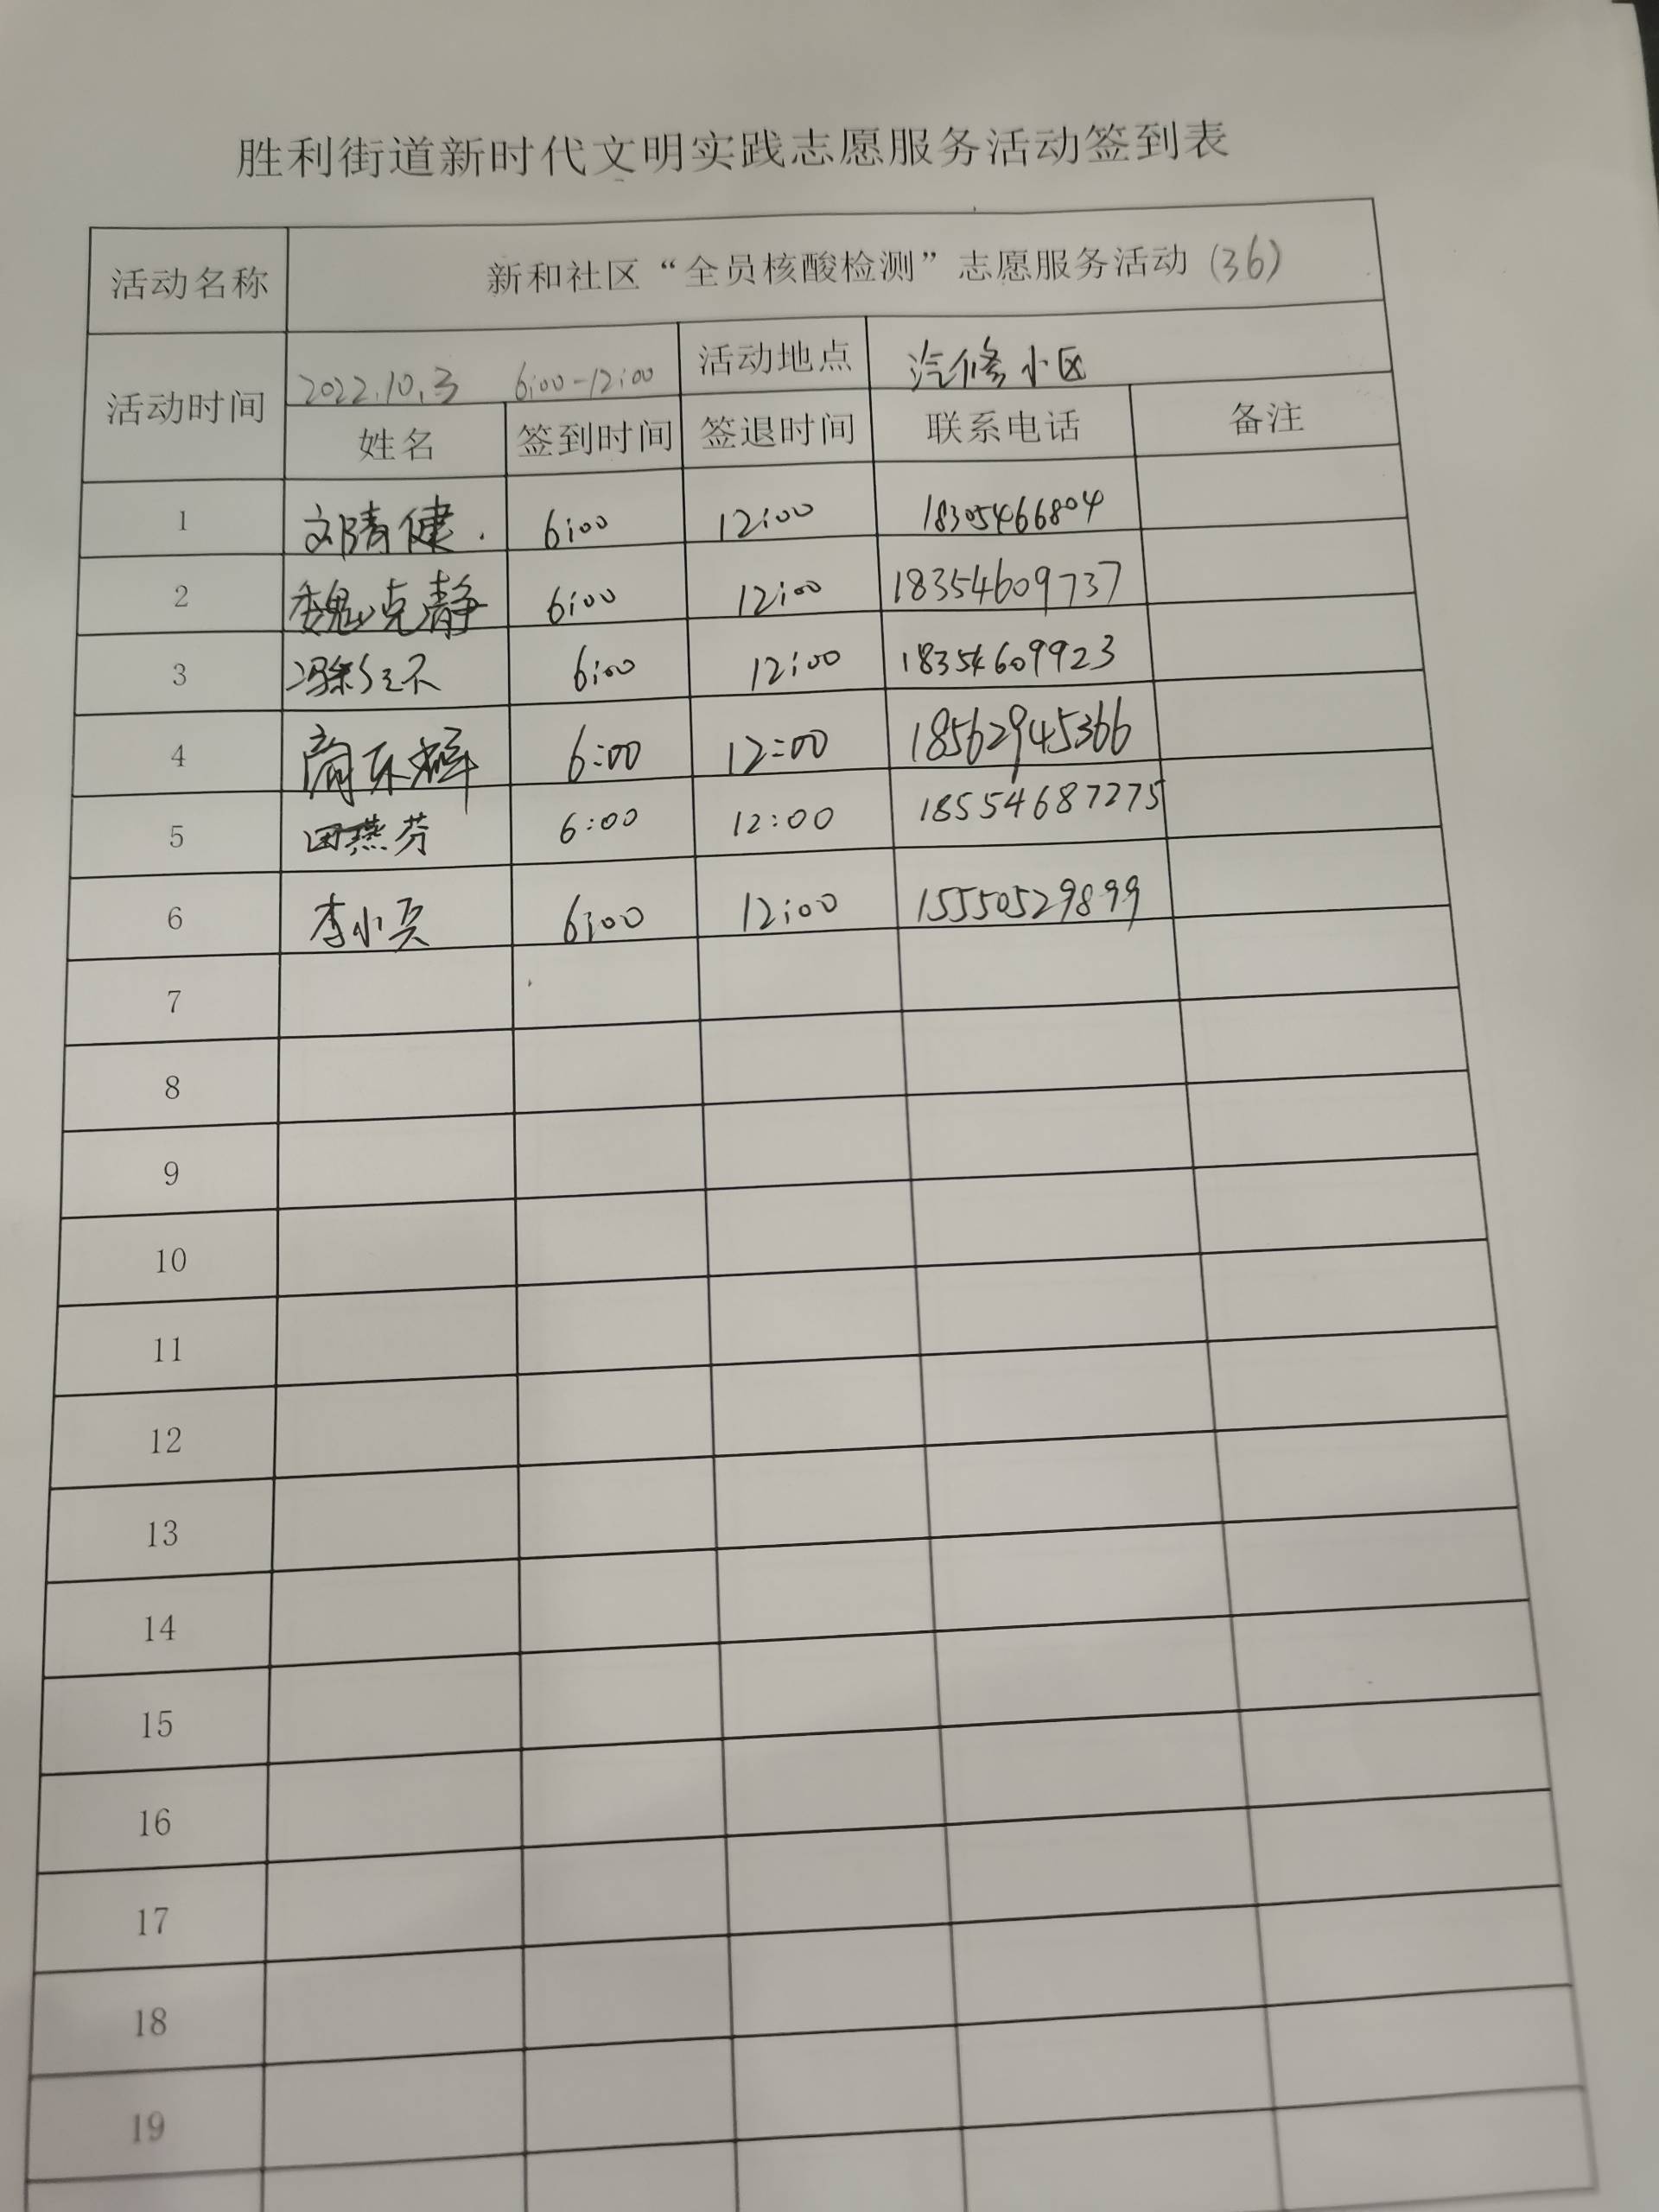 胜利街道新时代文明实践志愿服务活动签到表
活动名称 新和社区“全员核酸检测”志愿服务活动(36)
活动时间 2022.10.3 6:00-12:00 活动地点 汽修小区
姓名 签到时间 签退时间 联系电话 备注
1 6:00 12:00 18305466804
2 魏克静 6:00 12:00 18354609737
3 6:00 12:00 18354609923
4 6:00 12:00 18562945366
5 田燕芬 6:00 12:00 18554687275
6 李小兵 6:00 12:00 15550529899
7
8
9
10
11
12
13
14
15
16
17
18
19